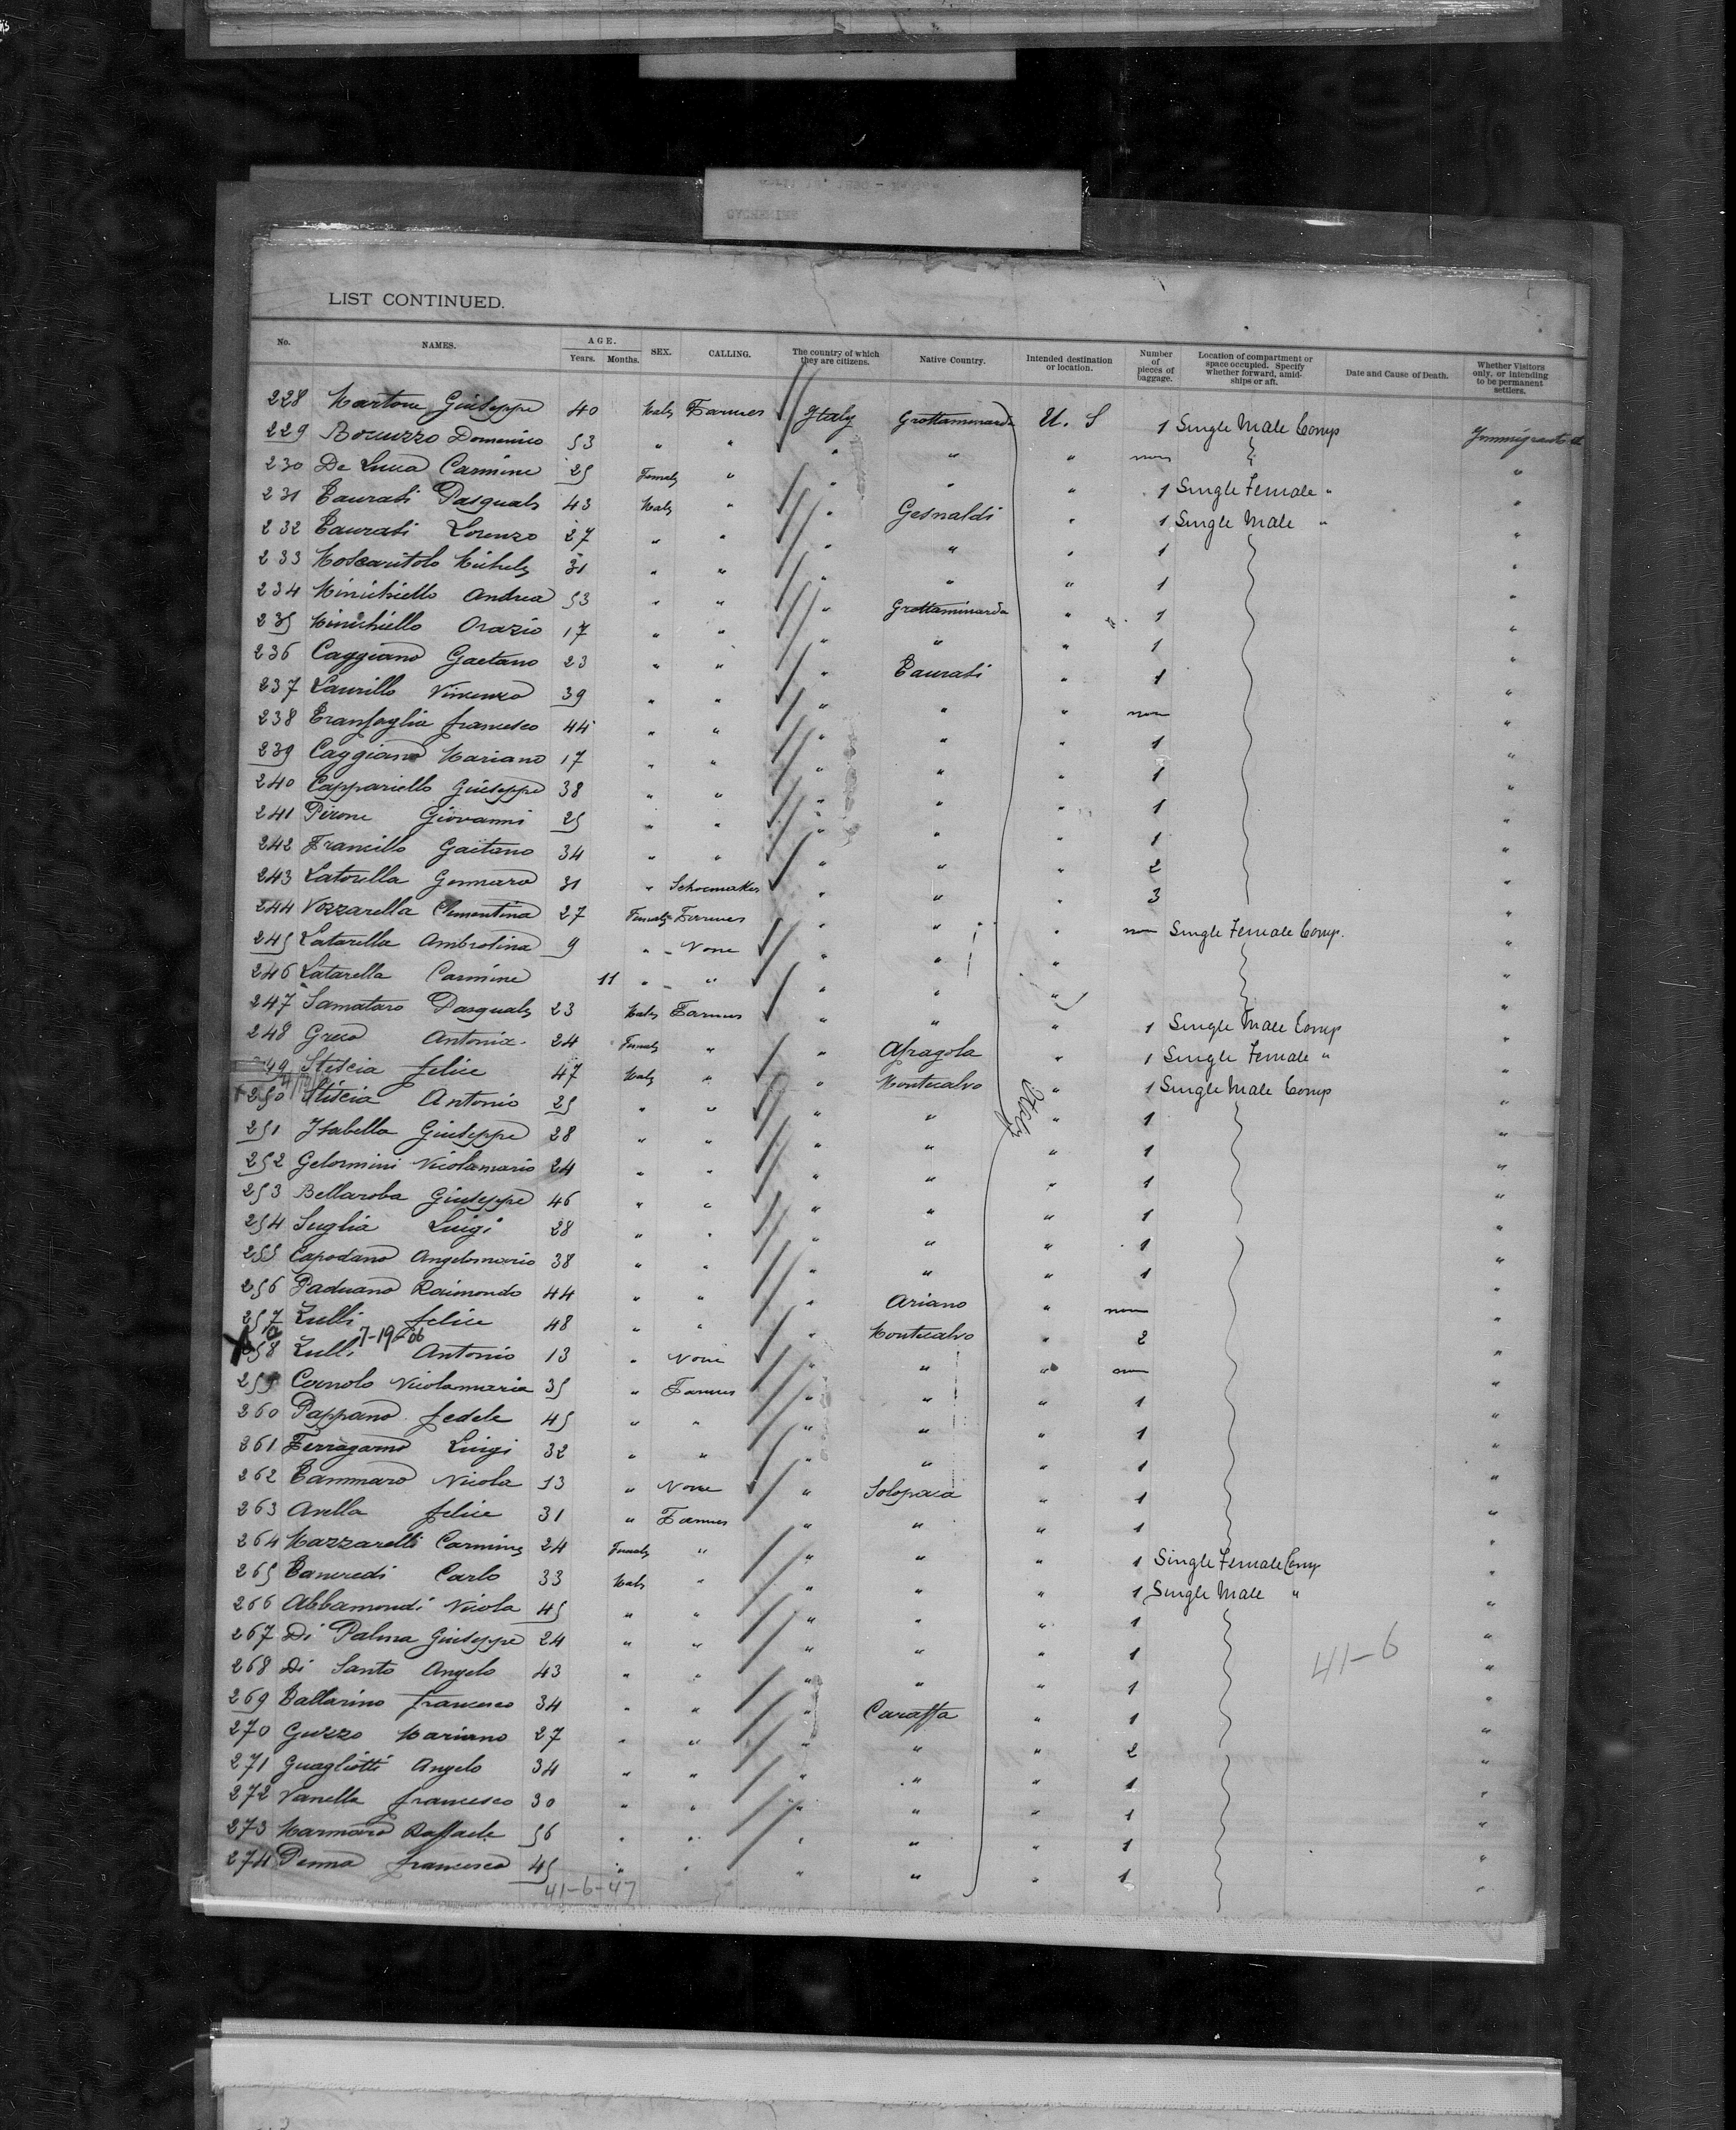 LIST CONTINUED.
No. NAMES. AGE. Years. Months. SEX. CALLING. The country of which they are citizens. Native Country. Intended destination or location. Number of pieces of baggage. Location of compartment or space occupied. Specify whether forward, amidships or aft. Date and Cause of Death. Whether Visitors only, or intending to be permanent settlers.
228 Martone Giuseppe 40 Male Farmer Italy Grottaminarda U. S 1 Single Male Comp
229 Bocuzzo Domenico 53 " " " " " "
230 De Luca Carmine 25 Female " " " " 1 Single Female " "
231 Taurasi Pasquale 43 Male " " Gesualdi " 1 Single Male " "
232 Taurasi Lorenzo 27 " " " " " 1 "
233 Moscaritolo Michele 31 " " " " " 1 "
234 Minichiello Andrea 53 " " " Grottaminarda " 1 "
235 Minichiello Orazio 17 " " " " " 1 "
236 Caggiano Gaetano 23 " " " Taurasi " 1 "
237 Laurillo Vincenzo 39 " " " " " "
238 Tranfaglia Francesco 44 " " " " " 1 "
239 Caggiano Mariano 17 " " " " " 1 "
240 Cappariello Giuseppe 38 " " " " " 1 "
241 Pirone Giovanni 25 " " " " " 1 "
242 Francillo Gaetano 34 " " " " " 2 "
243 Latorella Gennaro 31 " Schoemaker " " " 3 "
244 Vozzarella Clementina 27 Female Farmer " " " Single Female Comp. "
245 Latarella Ambrosina 9 " None " " " "
246 Latarella Carmine 11 " " " " " "
247 Samataro Pasquale 23 Male Farmer " " " 1 Single Male Comp "
248 Greco Antonia 24 Female " " Afragola " 1 Single Female " "
249 Stiscia Felice 47 Male " " Montecalvo " 1 Single Male Comp "
250 Stiscia Antonio 25 " " " " " 1 "
251 Isabella Giuseppe 28 " " " " " 1 "
252 Gelormini Nicolamario 24 " " " " " 1 "
253 Bellaroba Giuseppe 46 " " " " " 1 "
254 Suglia Luigi 28 " " " " " 1 "
255 Capodano Angelomario 38 " " " " " 1 "
256 Paduano Raimondo 44 " " " Ariano " "
257 Zulli Felice 48 " " " Montecalvo " 2 "
7-19-66
258 Zulli Antonio 13 " None " " " "
259 Cornolo Nicolamaria 35 " Farmer " " " 1 "
260 Pappano Fedele 45 " " " " " 1 "
261 Ferragamo Luigi 32 " " " " " 1 "
262 Tammaro Nicola 13 " None " Solopaca " 1 "
263 Avella Felice 31 " Farmer " " " 1 "
264 Mazzarelli Carmine 24 Female " " " " 1 Single Female Comp "
265 Tancredi Carlo 33 Male " " " " 1 Single Male " "
266 Abbamondi Nicola 45 " " " " " 1 "
267 Di Palma Giuseppe 24 " " " " " 1 "
41-6
268 Di Santo Angelo 43 " " " " " 1 "
269 Ballarino Francesco 34 " " " Caraffa " 1 "
270 Guzzo Mariano 27 " " " " " 2 "
271 Guagliotti Angelo 34 " " " " " 1 "
272 Vanella Francesco 30 " " " " " 1 "
273 Marmaro Raffaele 56 " " " " " 1 "
274 Penna Francesco 45 " " " " " 1 "
41-6-47